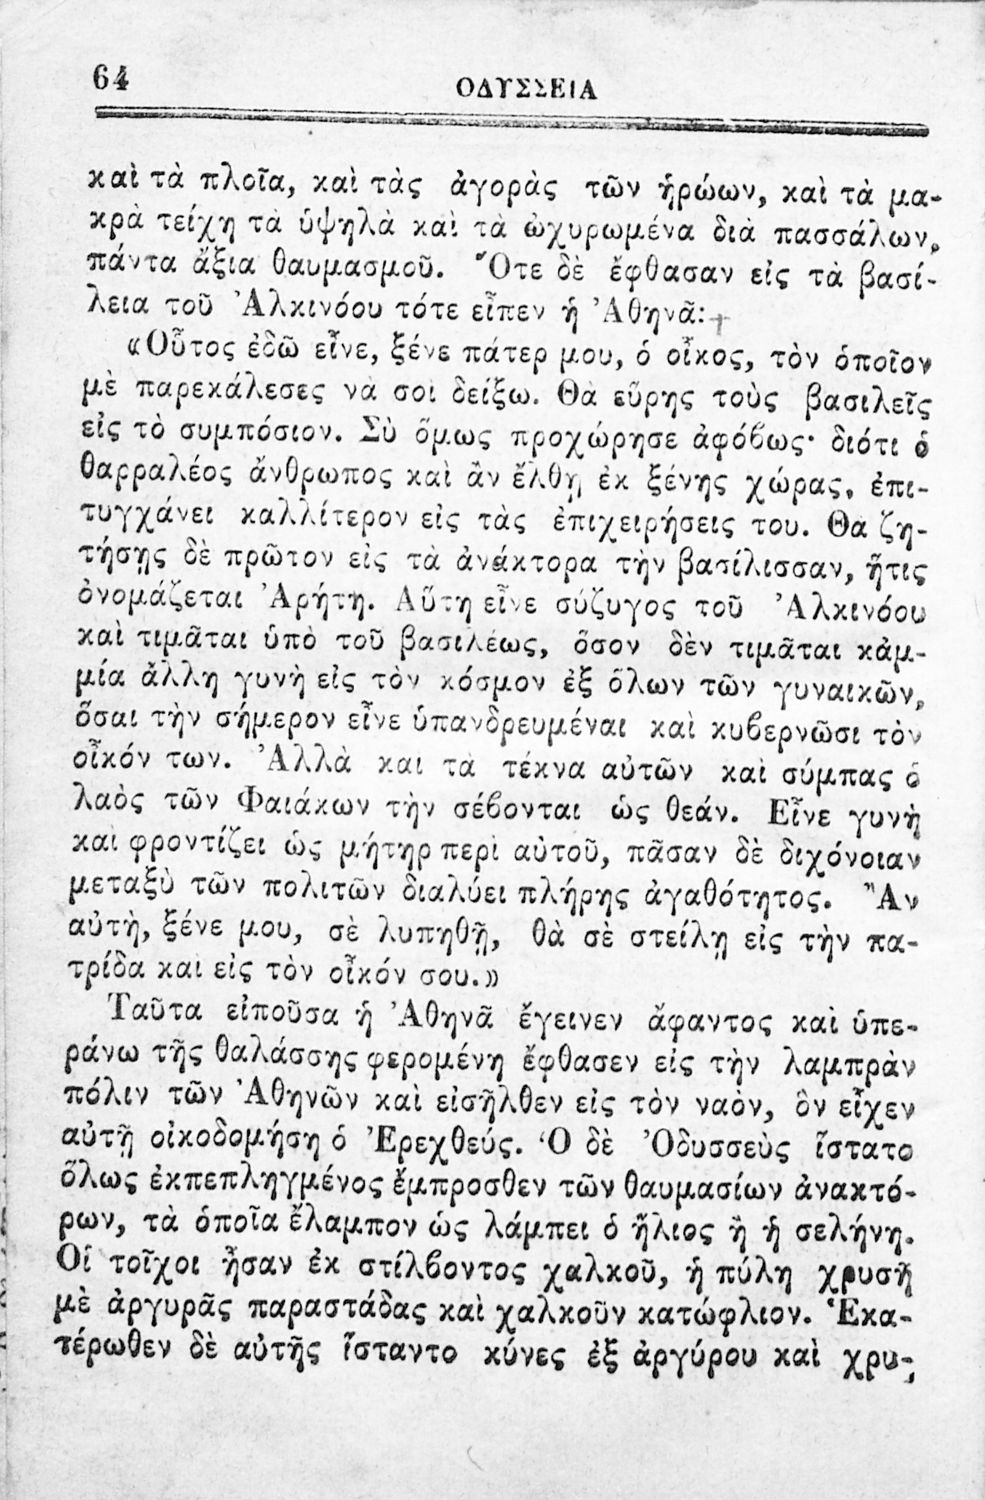 64
ΟΔΥΣΣΕΙΑ
καὶ τὰ πλοῖα, καὶ τὰς ἀγορὰς τῶν ἡρώων, καὶ τὰ μα-
κρὰ τείχη τὰ ὑψηλὰ καὶ τὰ ὠχυρωμένα διὰ πασσάλων,
πάντα ἄξια θαυμασμοῦ. Ὅτε δὲ ἔφθασαν εἰς τὰ βασί-
λεια τοῦ Ἀλκινόου τότε εἶπεν ἡ Ἀθηνᾶ:
«Οὗτος ἐδῶ εἶνε, ξένε πάτερ μου, ὁ οἶκος, τὸν ὁποῖον
μὲ παρεκάλεσες νὰ σοι δείξω. Θὰ εὕρης τοὺς βασιλεῖς
εἰς τὸ συμπόσιον. Σὺ ὅμως προχώρησε ἀφόβως· διότι ὁ
θαρραλέος ἄνθρωπος καὶ ἂν ἔλθῃ ἐκ ξένης χώρας, ἐπι-
τυγχάνει καλλίτερον εἰς τὰς ἐπιχειρήσεις του. Θὰ ζη-
τήσῃς δὲ πρῶτον εἰς τὰ ἀνάκτορα τὴν βασίλισσαν, ἥτις
ὀνομάζεται Ἀρήτη. Αὕτη εἶνε σύζυγος τοῦ Ἀλκινόου
καὶ τιμᾶται ὑπὸ τοῦ βασιλέως, ὅσον δὲν τιμᾶται κἀμ-
μία ἄλλη γυνὴ εἰς τὸν κόσμον ἐξ ὅλων τῶν γυναικῶν,
ὅσαι τὴν σήμερον εἶνε ὑπανδρευμέναι καὶ κυβερνῶσι τὸν
οἶκόν των. Ἀλλὰ και τὰ τέκνα αὐτῶν καὶ σύμπας ὁ
λαὸς τῶν Φαιάκων τὴν σέβονται ὡς θεάν. Εἶνε γυνὴ
και φροντίζει ὡς μήτηρ περὶ αὐτοῦ, πᾶσαν δὲ διχόνοιαν
μεταξὺ τῶν πολιτῶν διαλύει πλήρης ἀγαθότητος. Ἂν
αὐτὴ, ξένε μου, σὲ λυπηθῇ, θὰ σὲ στείλῃ εἰς τὴν πα-
τρίδα και εἰς τὸν οἶκόν σου.»
Ταῦτα εἰποῦσα ἡ Ἀθηνᾶ ἔγεινεν ἄφαντος καὶ ὑπε-
ράνω τῆς θαλάσσης φερομένη ἔφθασεν εἰς τὴν λαμπρὰν
πόλιν τῶν Ἀθηνῶν καὶ εἰσῆλθεν εἰς τὸν ναὸν, ὃν εἶχεν
αὐτῇ οἰκοδομήση ὁ Ἐρεχθεύς. Ὁ δὲ Ὀδυσσεὺς ἵστατο
ὅλως ἐκπεπληγμένος ἔμπροσθεν τῶν θαυμασίων ἀνακτό-
ρων, τὰ ὁποῖα ἔλαμπον ὡς λάμπει ὁ ἥλιος ἢ ἡ σελήνη.
Οἱ τοῖχοι ἦσαν ἐκ στίλβοντος χαλκοῦ, ἡ πύλη χρυσῆ
μὲ ἀργυρᾶς παραστάδας καὶ χαλκοῦν κατώφλιον. Ἑκα-
τέρωθεν δὲ αὐτῆς ἵσταντο κύνες ἐξ ἀργύρου καὶ χρυ-